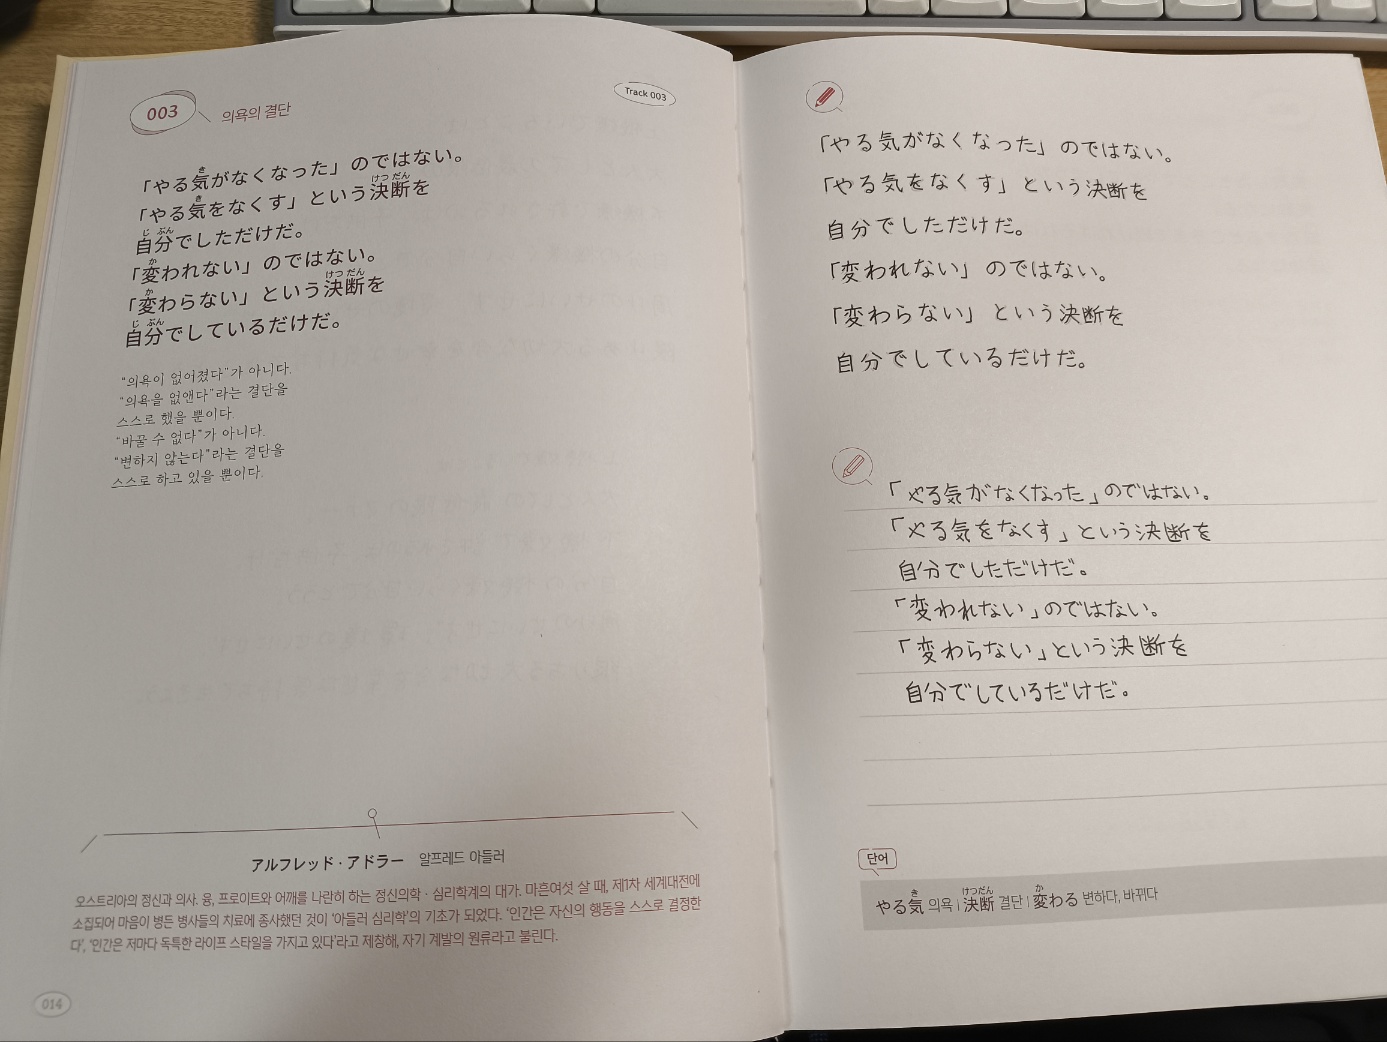 003
의욕의 결단
Track 003
「やる気がなくなった」のではない。
「やる気をなくす」という決断を
自分でしただけだ。
「変われない」のではない。
「変わらない」という決断を
自分でしているだけだ。
“의욕이 없어졌다”가 아니다.
“의욕을 없앤다”라는 결단을
스스로 했을 뿐이다.
“바꿀 수 없다”가 아니다.
“변하지 않는다”라는 결단을
스스로 하고 있을 뿐이다.
アルフレッド・アドラー 알프레드 아들러
오스트리아의 정신과 의사. 융, 프로이트와 어깨를 나란히 하는 정신의학·심리학계의 대가. 마흔여섯 살 때, 제1차 세계대전에
소집되어 마음이 병든 병사들의 치료에 종사했던 것이 ‘아들러 심리학’의 기초가 되었다. ‘인간은 자신의 행동을 스스로 결정한
다’, ‘인간은 저마다 독특한 라이프 스타일을 가지고 있다’라고 제창해, 자기 계발의 원류라고 불린다.
014
「やる気がなくなった」のではない。
「やる気をなくす」という決断を
自分でしただけだ。
「変われない」のではない。
「変わらない」という決断を
自分でしているだけだ。
「やる気がなくなった」のではない。
「やる気をなくす」という決断を
自分でしただけだ。
「変われない」のではない。
「変わらない」という決断を
自分でしているだけだ。
단어
やる気 의욕 | 決断 결단 | 変わる 변하다, 바뀌다